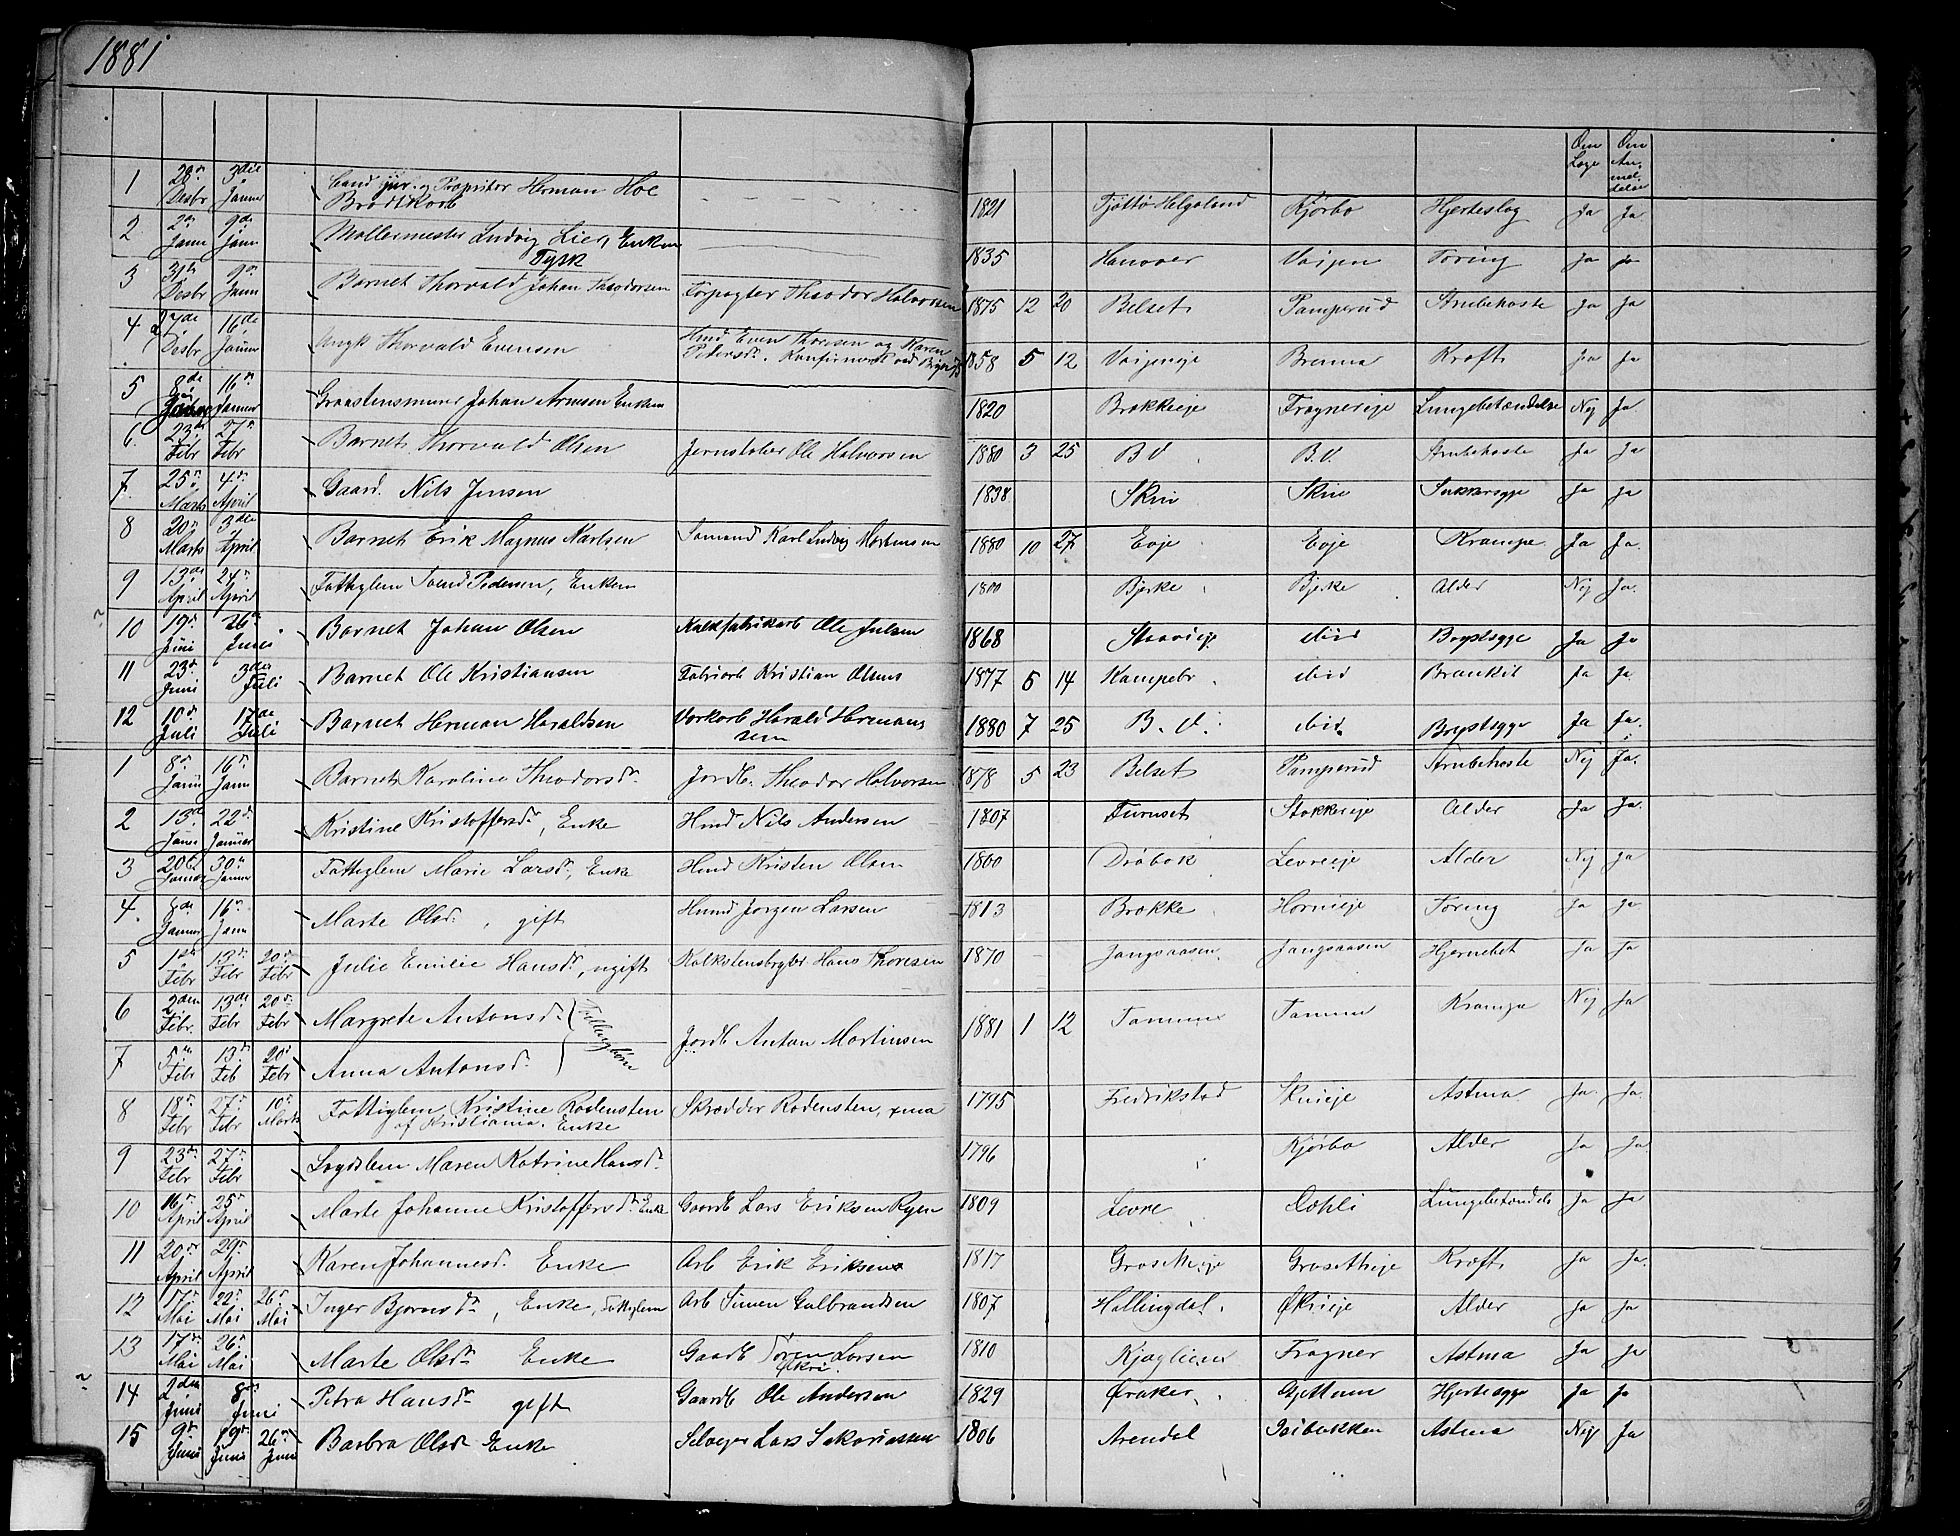 1881
Om Læge
Om Anmeldelse
1 28de Desbr 3die Januar Cand jur. og Proprietær Herman Hoe Brodtkorb 1821 Tjøttø Helgeland Kjørbo Hjerteslag Ja Ja
2 2den Janu 9de Janu Møllermester Ludvig Lier, Enkem Tysk 1835 Hanover Vøien Tæring Ja Ja
3 31te Desbr 9de Janu Barnet Thorvald Johan Theodorsen Forpagter Theodor Halvorsen 1875 12 20 Belset Pamperud Strubehoste Ja Ja
4 27de Desbr 16de Januar Ungk Thorvald Evensen Hmd Even Thoresen og Karen Petersd. Konfirmeret 1858 5 12 Vøieneje Brenna Kræft Ja Ja
5 8de Januar 16de Januar Graastensmurer Johan Arnesen Enkem 1820 Brækkeeje Fragnereje Lungebetændelse Nej Ja
6 23de Febr 27de Febr Barnet Thorvald Olsen Jernstøber Ole Halvorsen 1880 3 25 B.V. B.V. Strubehoste Ja Ja
7 25de Marts 4de April Gaard. Nils Jensen 1838 Skui Skui Sukkersyge Ja Ja
8 20de Marts 3die April Barnet Erik Magnus Karlsen Sømand Karl Ludvig Mortensen 1880 10 27 Evje Evje Krampe Ja Ja
9 13de April 24de April Fattiglem Svend Pedersen, Enkem 1800 Bjerke Bjerke Alder Nej Ja
10 19de Juni 26de Juni Barnet Johan Olsen Kalkfabrikarb Ole Julsen 1868 ibid Brystsyge Ja Ja
11 23de Juni 3die Juli Barnet Ole Kristiansen Fabriarb Kristian Olsens 1877 5 14 Kampebr ibid Bronkit Ja Ja
12 10de Juli 17de Juli Barnet Herman Haraldsen Værkarb Harald Hermansen 1880 7 25 B.V. ibid. Brystsyge Ja Ja
1 8de Janu 16de Janu Barnet Karoline Theodorsdr. Jordb. Theodor Halvorsen 1878 5 23 Belset Pamperud Strubehoste Nej Ja
2 13de Janu 22de Januar Kristine Kristoffersdr, Enke Hmd Nils Andersen 1807 Furuset Stokkereje Alder Ja Ja
3 20de Januar 30de Januar Fattiglem Marie Larsdr, Enke Hmd Kristen Olsen 1800 Drøbak Levreeje Alder Nej Ja
4 8de Januar 16de Janu Marte Olsdr, gift Hmd Jørgen Larsen 1813 Brække Hornieje Tæring Ja Ja
5 1ste Febr 13de Febr 20de Febr Julie Emilie Hansdr, ugift Kalkstensbryder Hans Thoresen 1870 Jongsaasen Jongsaasen Hjernebet Ja Ja
6 2den Febr 13de Febr 20de Febr Margrete Antonsdr. Tvillingbørn Jordb Anton Martinsen 1881 1 12 Tanum Tanum Krampe Nej Ja
7 5te Febr 13de Feb 20de Febr Anna Antonsdr.
8 18de Febr 27de Febr 10de Marts Fattiglem Kristine Rodensten af Kristiania. Enke Skrædder Rodensten, Xania 1795 Fredrikstad Skuieje Astma Ja Ja
9 23de Febr 27de Febr Lægdslem Maren Katrine Hansdr. 1796 Kjørbo Alder Ja Ja
10 16de April 25de April Marte Johanne Kristoffersdr. Enke Gaardb Lars Eriksen Ryen 1809 Levre Dæhli Lungebetændels Ja Ja
11 20de April 29de April Karen Johannesdr. Enke Arb Erik Eriksens 1817 Grosetteje Grosetteje Kræft Ja Ja
12 17de Mai 22de Mai 26de Mai Inger Bjørnsdr, Enke, Fattiglem Arb Simen Gulbrandsen 1807 Hallingdal. Økrieje Alder Ja Ja
13 17de Mai 26de Mai Marte Olsdr Enke Gaardb Søren Larsen Økri 1810 Kjaglien Fragner Astma Ja Ja
14 2den Juni 8de Juni Petra Hansdr gift Gaardb Ole Andersen 1829 Øraker Gjettum Hjertesyge Ja Ja
15 9de Juni 19de Juni 26de Juni Barbra Olsdr Enke Selveger Lars Sakariassen 1806 Arendal Astma Nej Ja